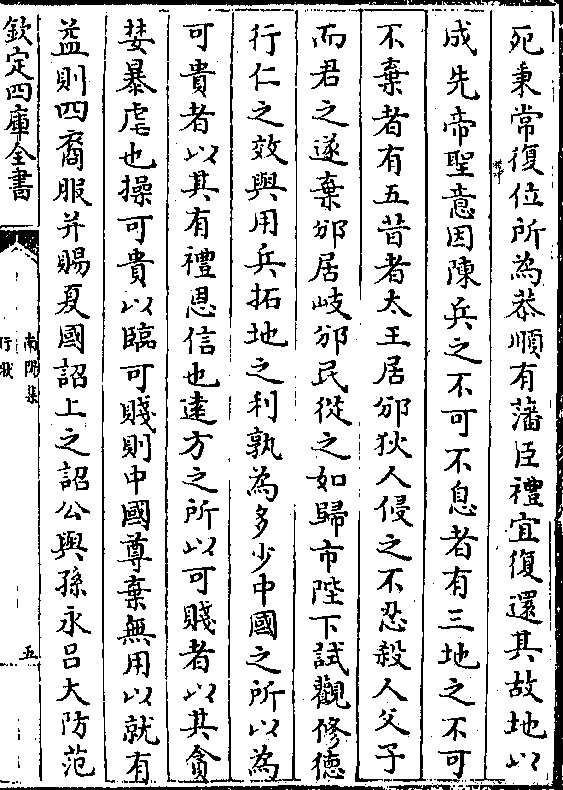 死秉常復位所為恭順有藩臣禮宜復還其故地以
成先帝聖意因陳兵之不可不息者有三地之不可
不棄者有五昔者太王居邠狄人侵之不忍殺人父子
而君之遂棄邠居岐邠民從之如歸市陛下試觀修德
行仁之效與用兵拓地之利孰為多少中國之所以為
可貴者以其有禮恩信也逺方之所以可賤者以其貪
婪暴虐也操可貴以臨可賤則中國尊棄無用以就有
益則四裔服并賜夏國詔上之詔公與孫永吕大防范
欽定四庫全書
南陽集
行狀
五